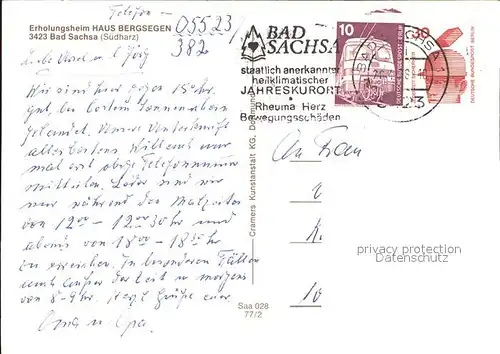 Erholungsheim HAUS BERGSEGEN
3423 Bad Sachsa (Südharz)
Telefon -
05523/
382
BAD
SACHSA
staatlich anerkannter
heilklimatischer
JAHRESKURORT
•
Rheuma Herz
Bewegungsschäden
10
DEUTSCHE BUNDESPOST BERLIN
30
DEUTSCHE BUNDESPOST BERLIN
Liebe Ursel u. Jörg
Wir sind hier gegen 15 Uhr
gut, bei bestem
gelandet. Unsere Unterkunft
alles bestens. Will Euch nur
mal erst obige Telefonnummer
mitteilen. Leider sind wir
nur während der Malzeiten
von 12 00 - 12 30 Uhr und
abends von 18 00 - 18 30 Uhr
zu erreichen. In besonderen Fällen
auch außer der Zeit u. morgens
von 8-9 Uhr. Herzl. Grüße Euer
Oma u. Opa.
Cramers Kunstanstalt KG, Dortmund
An Frau
Saa 028
77/2
privacy protection
Datenschutz